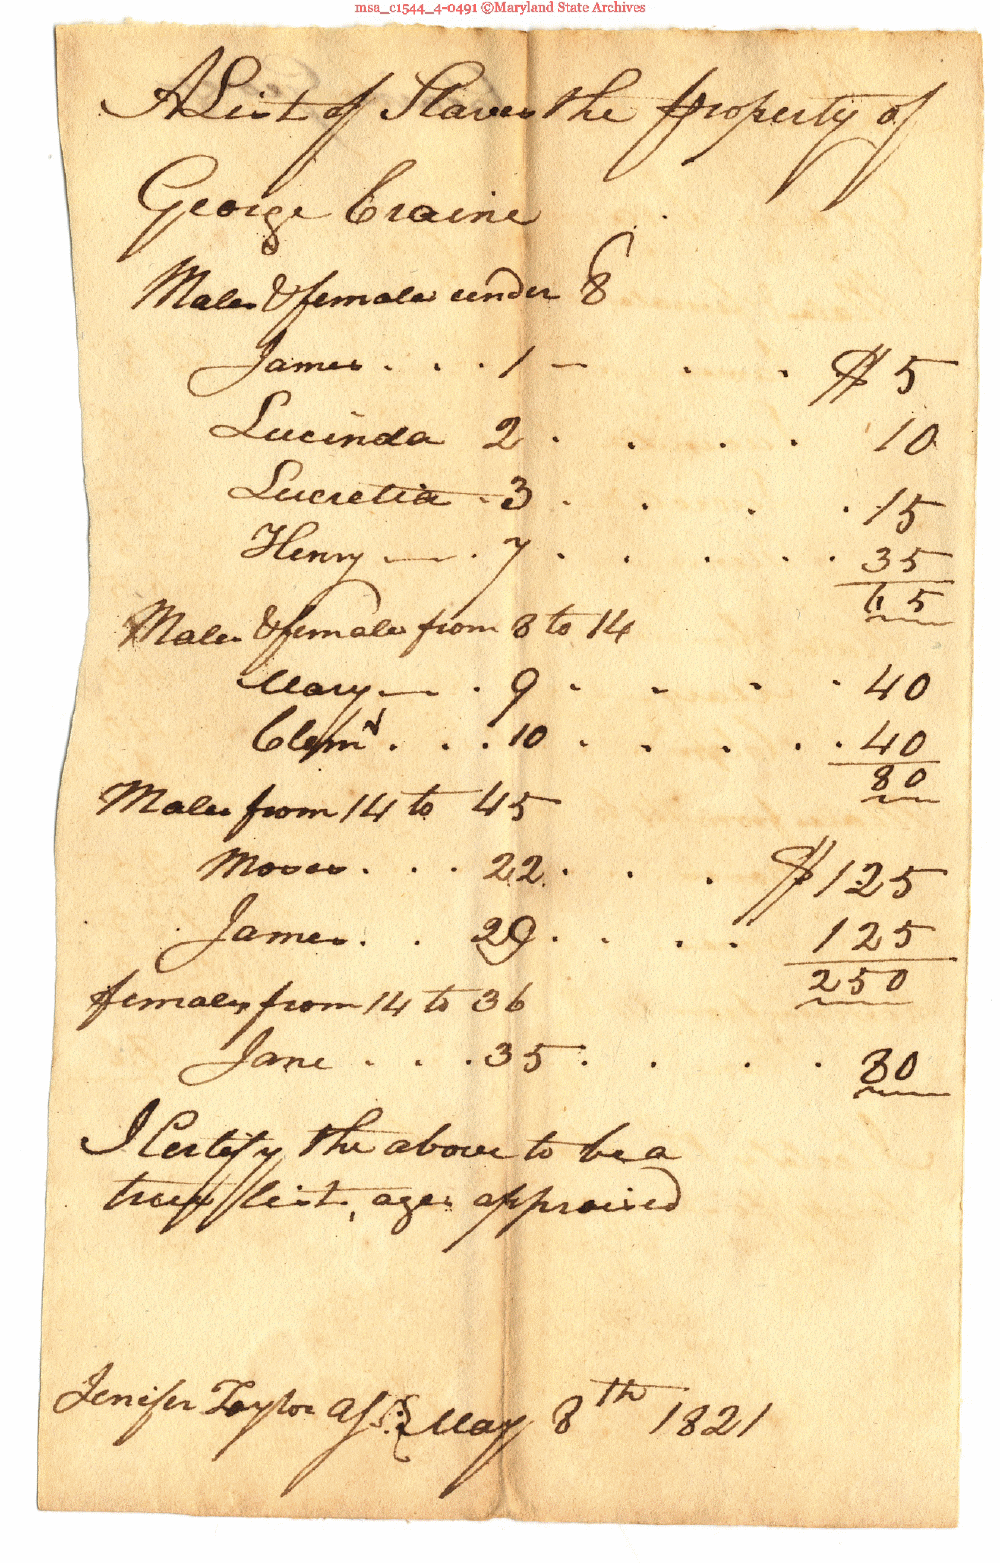 msa_c1544_4-0491 ©Maryland State Archives
A List of Slaves the property of
George Craine
Males & females under 8
James . . . 1 — . . $5
Lucinda 2 . . . . 10
Lucretia . 3 . . . . 15
Henry — . 7 . . . . . 35
65
Males & females from 8 to 14
Mary — . 9 . . . . 40
Clem^t . . . 10 . . . . . 40
80
Males from 14 to 45
Moses . . . 22 . . . $125
James . . 29 . . . . 125
250
females from 14 to 36
Jane . . . 35 . . . . 80
I Certify the above to be a
true list, ages appraised
Jenifer Taylor Ass: May 8th 1821